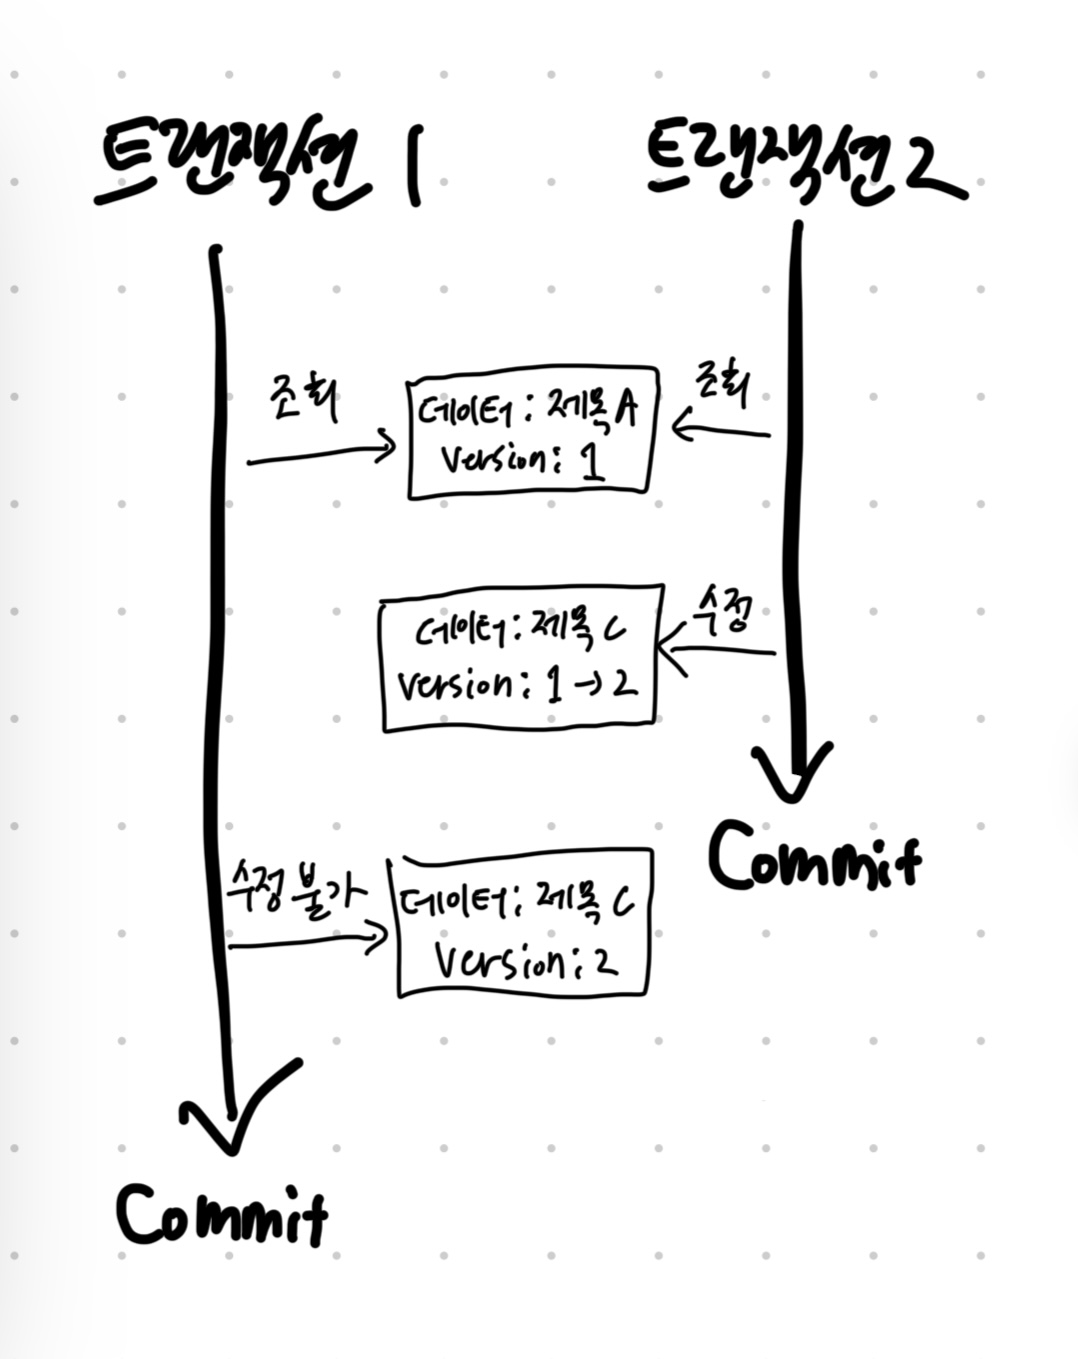 트랜잭션 1
트랜잭션 2
조회
데이터 : 제목 A
Version : 1
조회
데이터 : 제목 C
Version : 1 → 2
수정
Commit
수정 불가
데이터 : 제목 C
Version : 2
Commit